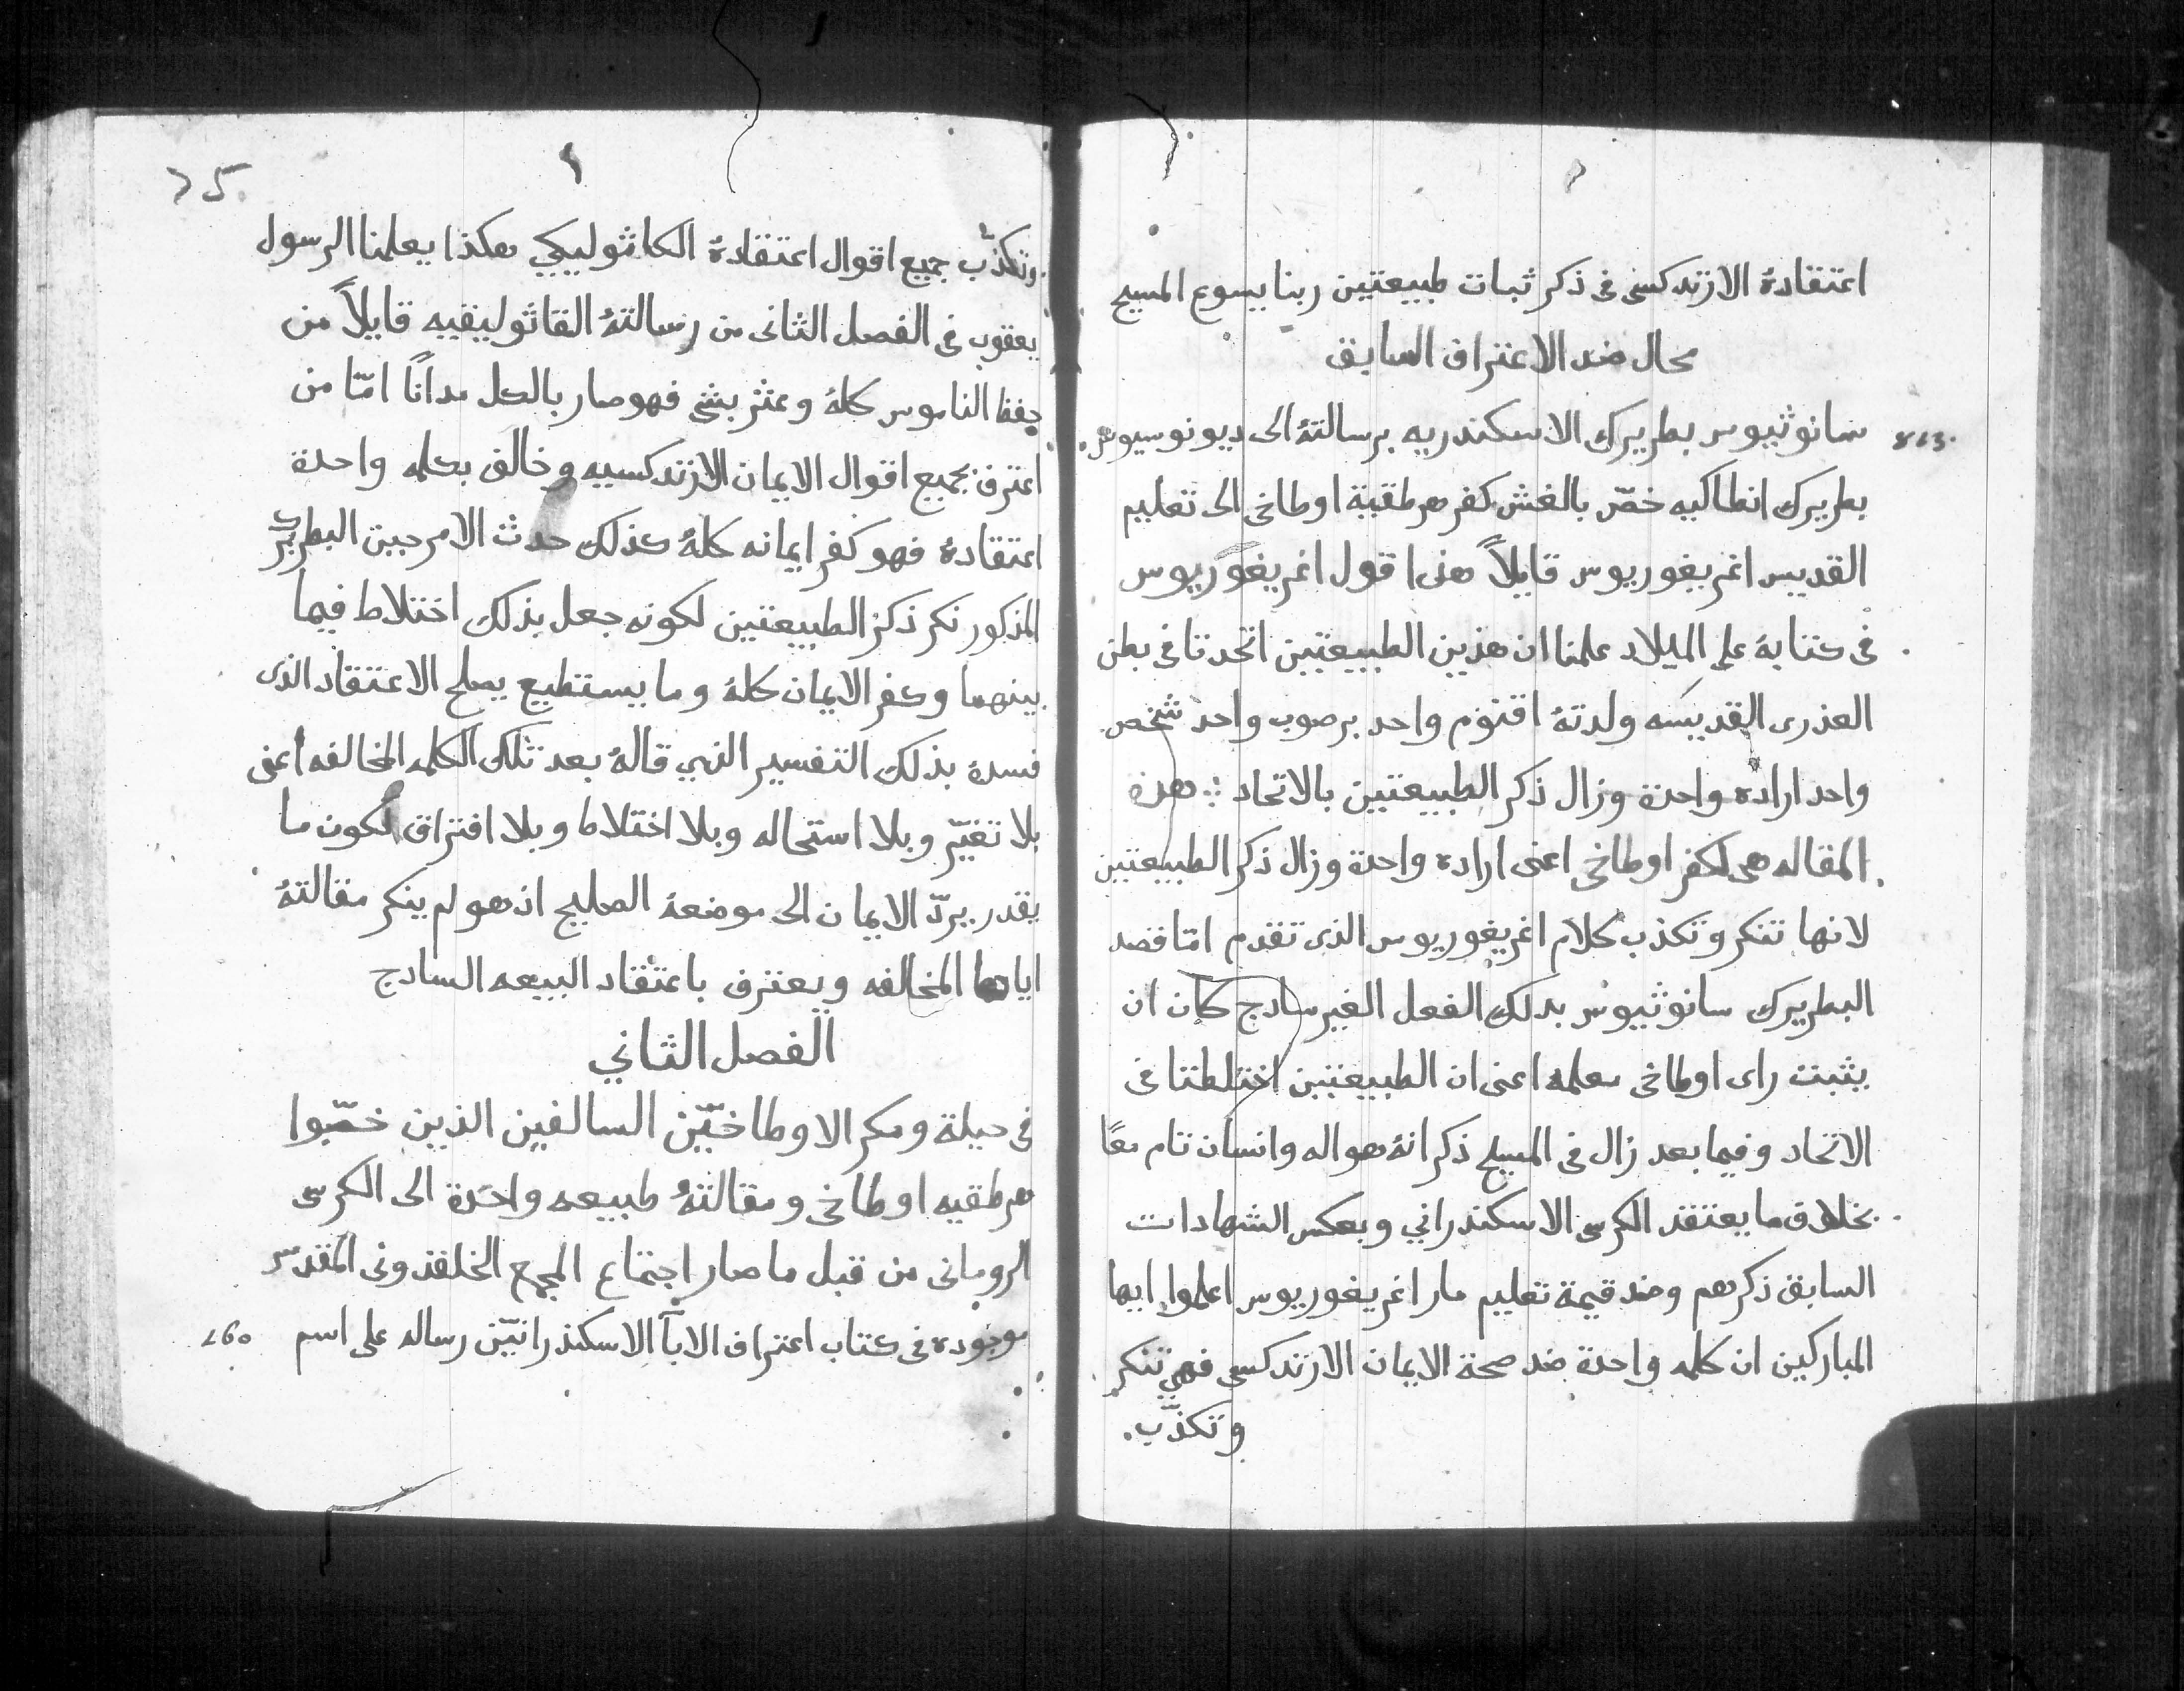 اعتقاده الارتدكسى فى ذكر ثبات طبيعتين ربنا يسوع المسيح
محال ضد الاعتراف السابق
سانوثيوس بطريرك الاسكندريه برسالتهُ الى ديونوسيوس
بطريرك انطاكيه خصّر بالغش كفر هرطقية اوطاخى الى تعليم
القديس اغريغوريوس قايلاً هذا قول اغريغوريوس
فى كتابهُ على الميلاد علمنا ان هذين الطبيعتين اتحدتا فى بطن
العذرى القديسه ولدتهُ اقنوم واحد برصوب واحد شخص
واحد اراده واحدة وزال ذكر الطبيعتين بالاتحاد ∴ هذه
المقاله هى لكفر اوطاخى اعنى اراده واحدة وزال ذكر الطبيعتين
لانها تنكر وتكذب كلام اغريغوريوس الذى تقدم امّا قصد
البطريرك سانوثيوس بدلك الفعل الغير سادج كان ان
يثبت راى اوطاخى معلمهُ اعنى ان الطبيعتين اختلطتا فى
الاتحاد وفيما بعد زال فى المسيح ذكر انهُ هو اله وانسان تام معًا
بخلاف ما يعتقد الكرسى الاسكندراني وبعكس الشهادات
السابق ذكرهم وضد قيمة تعليم مار اغريغوريوس اعلموا ايها
المباركين ان كلمه واحدة ضد صحة الايمان الارتدكسى فهي تنكر
وتكذّب.
وتكذّب جميع اقوال اعتقادهُ الكاثوليكي هكذا يعلمنا الرسول
يعقوب فى الفصل الثانى من رسالتهُ القاثوليقيه قايلاً من
حفظ الناموس كلهُ وعثر بشى فهو صار بالكل مدانًا امّا من
اعترف بجميع اقوال الايمان الارتدكسيه وخالف بكلمه واحدة
اعتقادهُ فهو كفر ايمانه كلهُ كذلك حدث الامر حين البطريرك
المذكور نكر ذكر الطبيعتين لكونه جعل بذلك اختلاط فيما
بينهما وكفر الايمان كلهُ وما يستطيع يصلح الاعتقاد الذى
فسده بذلك التفسير الذي قالهُ بعد تلك الكلمه المخالفه اعنى
بلا تغيّر وبلا استحاله وبلا اختلاط وبلا افتراق لكون ما
يقدر يردّ الايمان الى موضعهُ الصليح ان هو لم ينكر مقالتهُ
اياها المخالفه ويعترف باعتقاد البيعه السادج
الفصل الثاني
فى حيلة ومكر الاوطاخيّين السالفين الذين خصّبوا
هرطقيه اوطاخى ومقالتهُ طبيعه واحدة الى الكرسى
الرومانى من قبل ما صار اجتماع المجمع الخلقذونى المقدس
موجوده فى كتاب اعتراف الابآ الاسكندرانيّين رساله على اسم